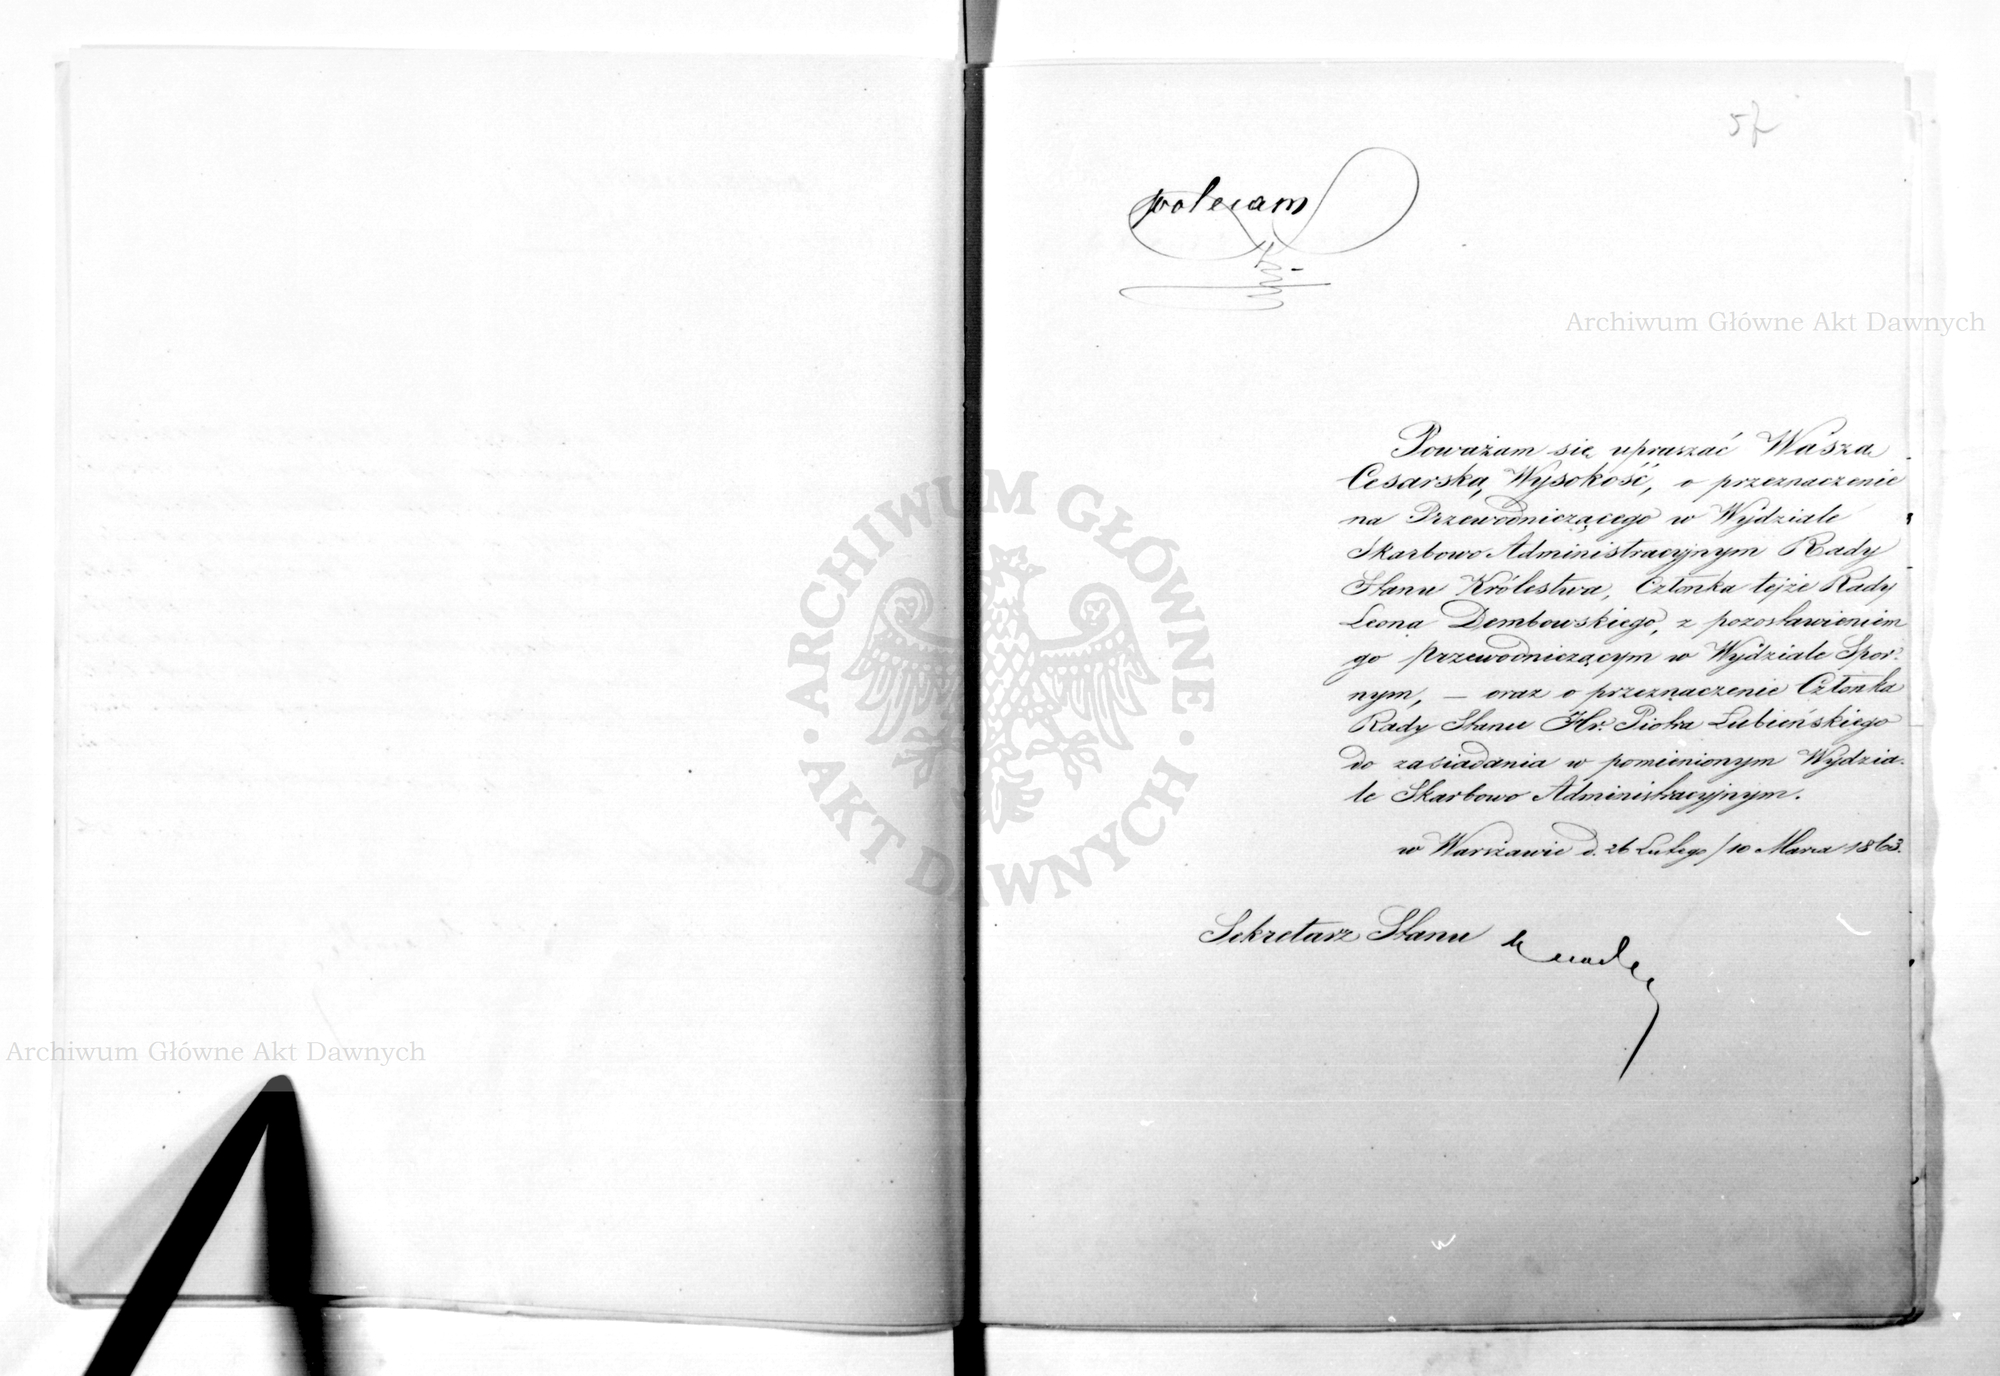 57
polecam
Poważam się upraszać Waszą
Cesarską Wysokość, o przeznaczenie
na Przewodniczącego w Wydziale
Skarbowo Administracyjnym Rady
Stanu Królestwa, Członka tejże Rady
Leona Dembowskiego, z pozostawieniem
go przewodniczącym w Wydziale Spor-
nym, — oraz o przeznaczenie Członka
Rady Stanu Hr. Piotra Łubieńskiego
do zasiadania w pomienionym Wydzia-
le Skarbowo Administracyjnym.
w Warszawie d. 26 Lutego/10 Marca 1863.
Sekretarz Stanu
Archiwum Główne Akt Dawnych
Archiwum Główne Akt Dawnych
ARCHIWUM GŁÓWNE
AKT DAWNYCH